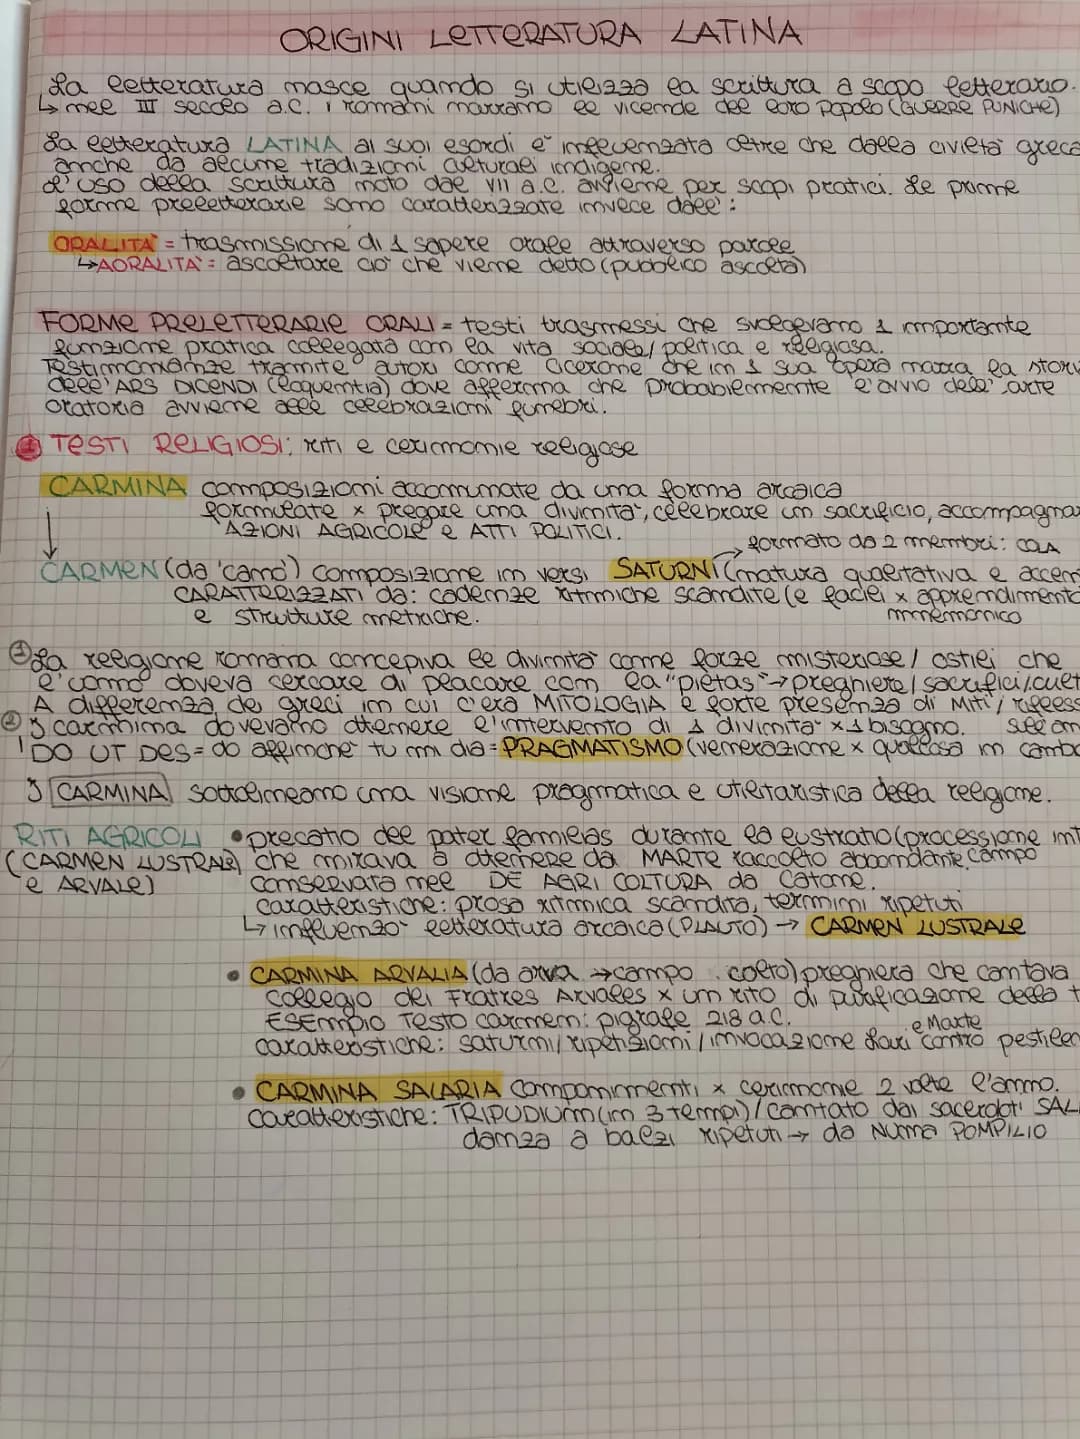 ORIGINI LETTERATURA LATINA
La letteratura nasce quando si utilizza la scrittura a scopo letterario.
↳ nel III secolo a.C. i romani narrano le vicende del loro popolo (GUERRE PUNICHE)
La letteratura LATINA ai suoi esordi è influenzata oltre che dalla civiltà greca
anche da alcune tradizioni culturali indigene.
L'uso della scrittura noto dal VII a.C. avviene per scopi pratici. Le prime
forme preletterarie sono caratterizzate invece dall':
ORALITÀ = trasmissione di 1 sapere orale attraverso parole
↳AORALITÀ: ascoltare ciò che viene detto (pubblico ascolta)
FORME PRELETTERARIE ORALI = testi trasmessi che svolgevano 1 importante
funzione pratica collegata con la vita sociale/politica e religiosa.
Testimonianze tramite autori come Cicerone che in 1 sua opera narra la stori
dell'ARS DICENDI (eloquentia) dove afferma che probabilmente l'avvio dell'arte
oratoria avviene alle celebrazioni funebri.
TESTI RELIGIOSI: riti e cerimonie religiose
CARMINA composizioni accomunate da una forma arcaica
formulate x pregare una divinità, celebrare un sacrificio, accompagna
AZIONI AGRICOLE e ATTI POLITICI.
→ formato da 2 membri: cola
CARMEN (da 'cano') composizione in versi SATURNI (natura qualitativa e accen
CARATTERIZZATI da: cadenze ritmiche scandite (e facili x apprendimento
e strutture metriche. mnemonico
① La religione romana concepiva le divinità come forze misteriose/ostili che
l'uomo doveva cercare di placare con la "pietas" → preghiere/sacrifici/cult
A differenza dei greci in cui c'era MITOLOGIA e forte presenza di Miti/rifless
② I carmina dovevano ottenere l'intervento di 1 divinità x 1 bisogno.
DO UT DES = do affinché tu mi dia = PRAGMATISMO (venerazione x qualcosa in camb
I CARMINA sottolineano una visione pragmatica e utilitaristica della religione.
RITI AGRICOLI • precatio del pater familias durante la lustratio (processione int
(CARMEN LUSTRALE che mirava a ottenere da MARTE raccolto abbondante. campo
e ARVALE) conservata nel DE AGRI COLTURA da Catone.
caratteristiche: prosa ritmica scandita, termini ripetuti
↳ influenzò letteratura arcaica (PLAUTO) → CARMEN LUSTRALE
• CARMINA ARVALIA (da arva → campo colto) preghiera che cantava
collegio dei Fratres Arvales x un rito di purificazione della t
ESEmpio Testo carmen: pigrafe 218 a.C.
caratteristiche: saturni/ripetizioni/invocazione Lari e Marte contro pestilen
• CARMINA SALARIA componimenti x cerimonie 2 volte l'anno.
Caratteristiche: TRIPUDIUM (in 3 tempi)/cantato dai sacerdoti SAL
danza a balzi ripetuti → da Numa POMPILIO